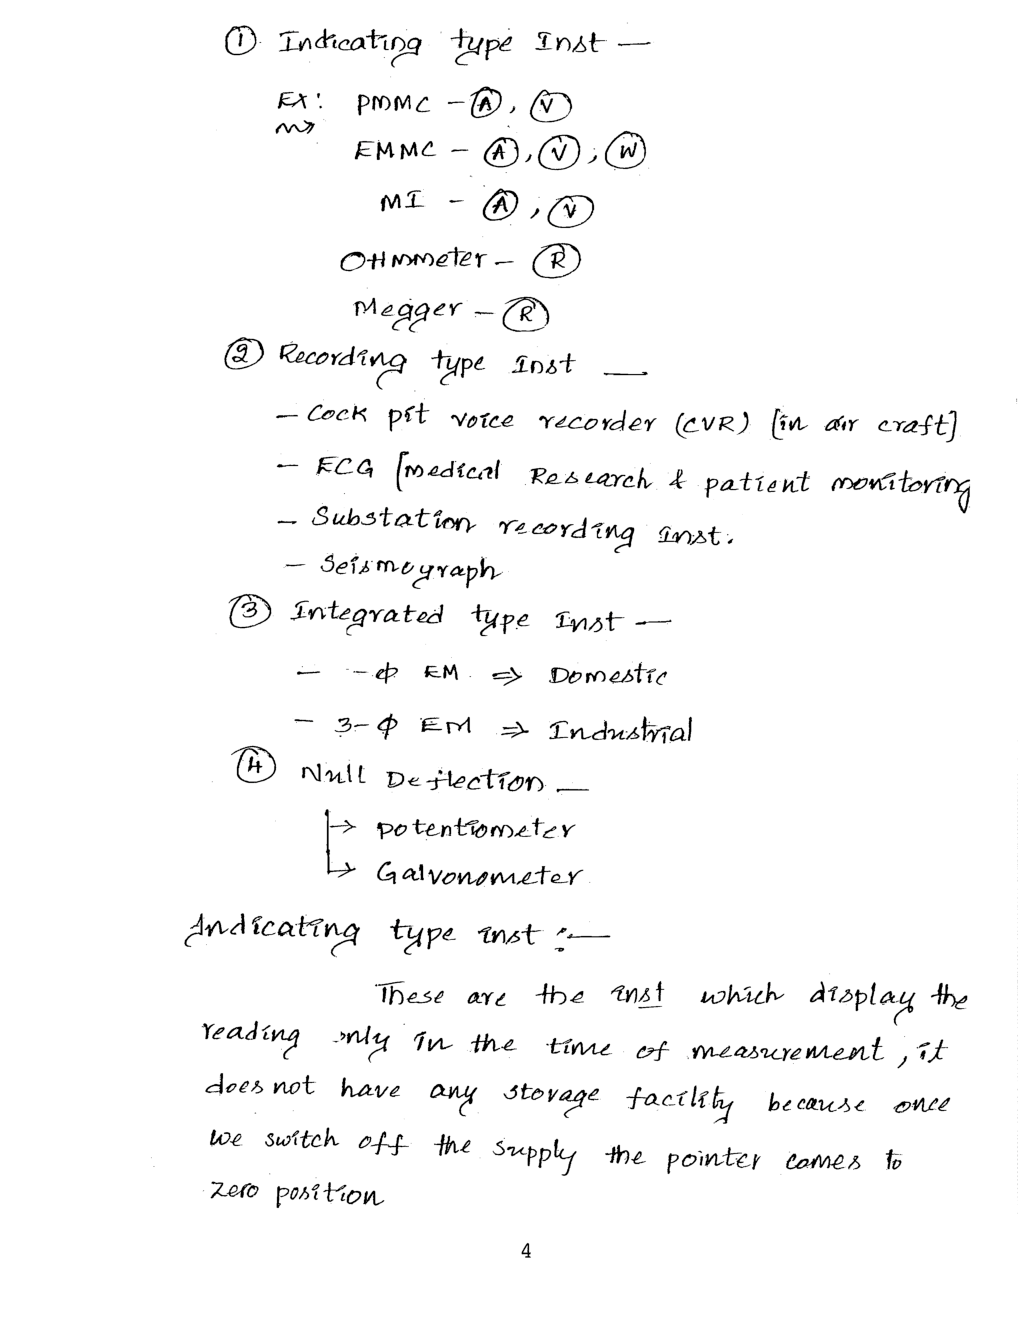 ① Indicating type Inst —
Ex: PMMC - Ⓐ, Ⓥ
EMMC - Ⓐ, Ⓥ, Ⓦ
MI - Ⓐ, Ⓥ
OHMmeter - Ⓡ
Megger - Ⓡ
② Recording type Inst —
- Cock pit voice recorder (CVR) [in air craft]
- ECG [medical Research & patient monitoring
- Substation recording inst.
- Seismograph
③ Integrated type Inst —
- -ϕ EM ⇒ Domestic
- 3-ϕ EM ⇒ Industrial
④ Null Deflection —
→ potentiometer
→ Galvonometer
Indicating type inst :—
These are the inst which display the
reading only in the time of measurement, it
does not have any storage facility because once
we switch off the supply the pointer comes to
zero position
4